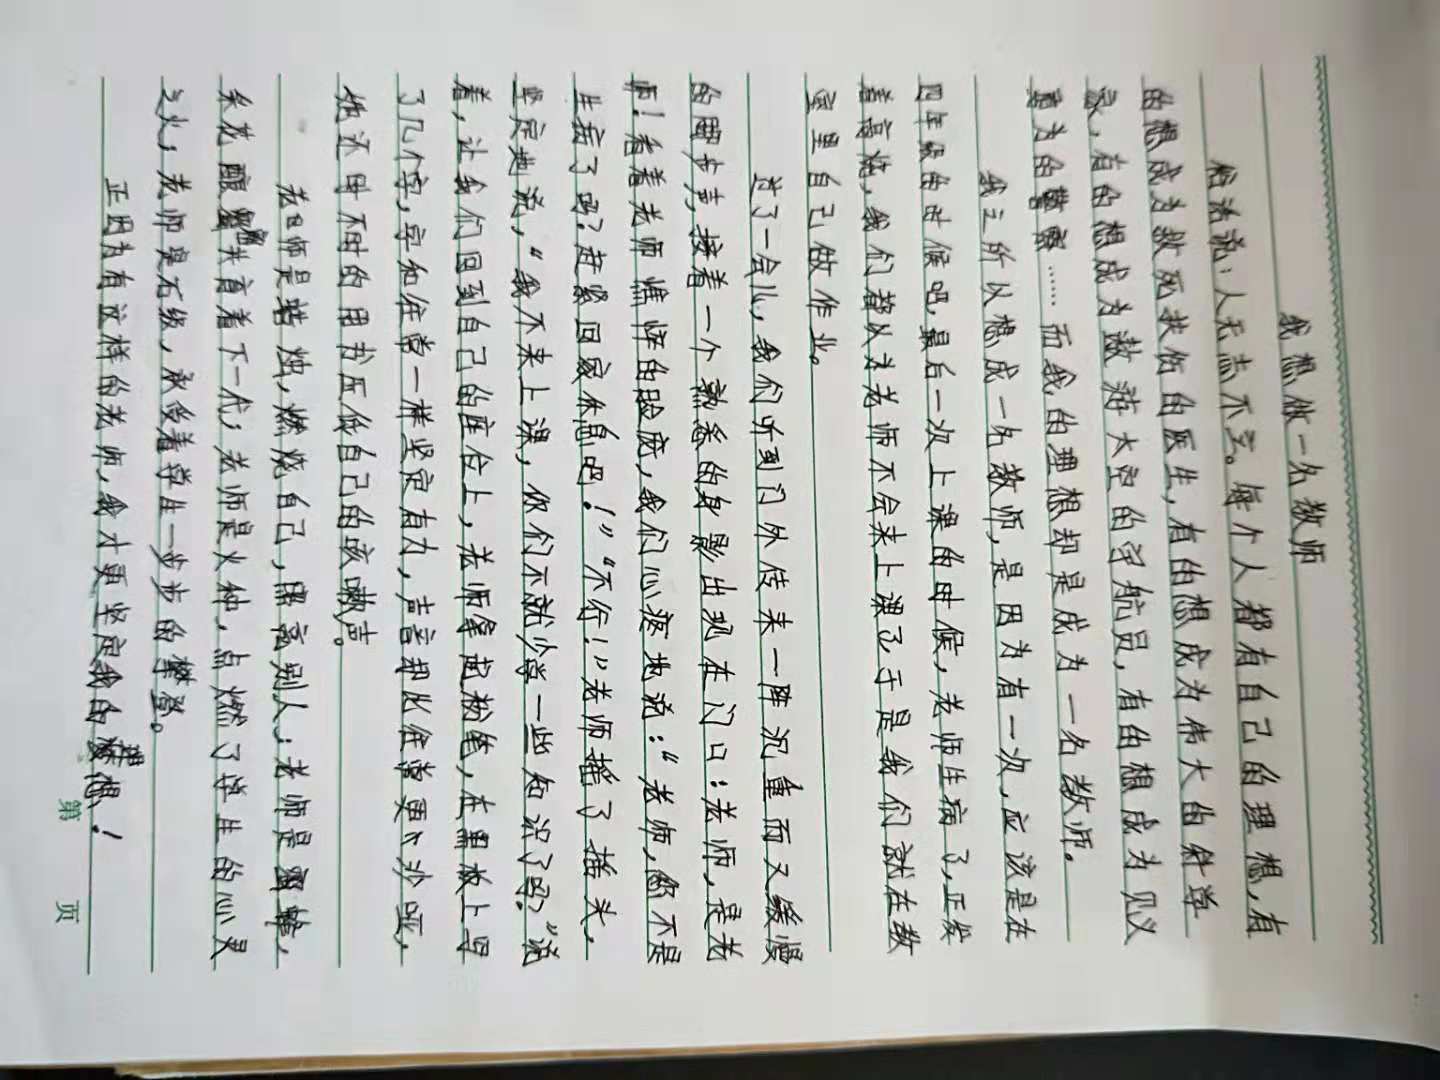 我想做一名教师
俗话说：人无志不立。每个人都有自己的理想，有
的想成为救死扶伤的医生，有的想成为伟大的科学
家，有的想成为遨游太空的宇航员，有的想成为见义
勇为的警察……而我的理想却是成为一名教师。
我之所以想成一名教师，是因为有一次，应该是在
四年级的时候吧，最后一次上课的时候，老师生病了，正发
着高烧，我们都以为老师不会来上课了，于是我们就在教
室里自己做作业。
过了一会儿，我们听到门外传来一阵沉重而又缓慢
的脚步声，接着一个熟悉的身影出现在门口：老师，是老
师！看着老师憔悴的脸庞，我们心疼地说：“老师，您不是
生病了吗？赶紧回家休息吧！”“不行！”老师摇了摇头，
坚定地说，“我不来上课，你们不就少学一些知识了吗？”说
着，让我们回到自己的座位上，老师拿起粉笔，在黑板上写
了几个字，字和往常一样坚定有力，声音却比往常更卜沙哑，
她还时不时的用书压低自己的咳嗽声。
老师是蜡烛，燃烧自己，照亮别人；老师是蜜蜂，
采花酿蜜，共育着下一代；老师是火种，点燃了学生的心灵
之火；老师是石级，承受着学生一步步的攀登。
正因为有这样的老师，我才更坚定我的理想！
第　　页